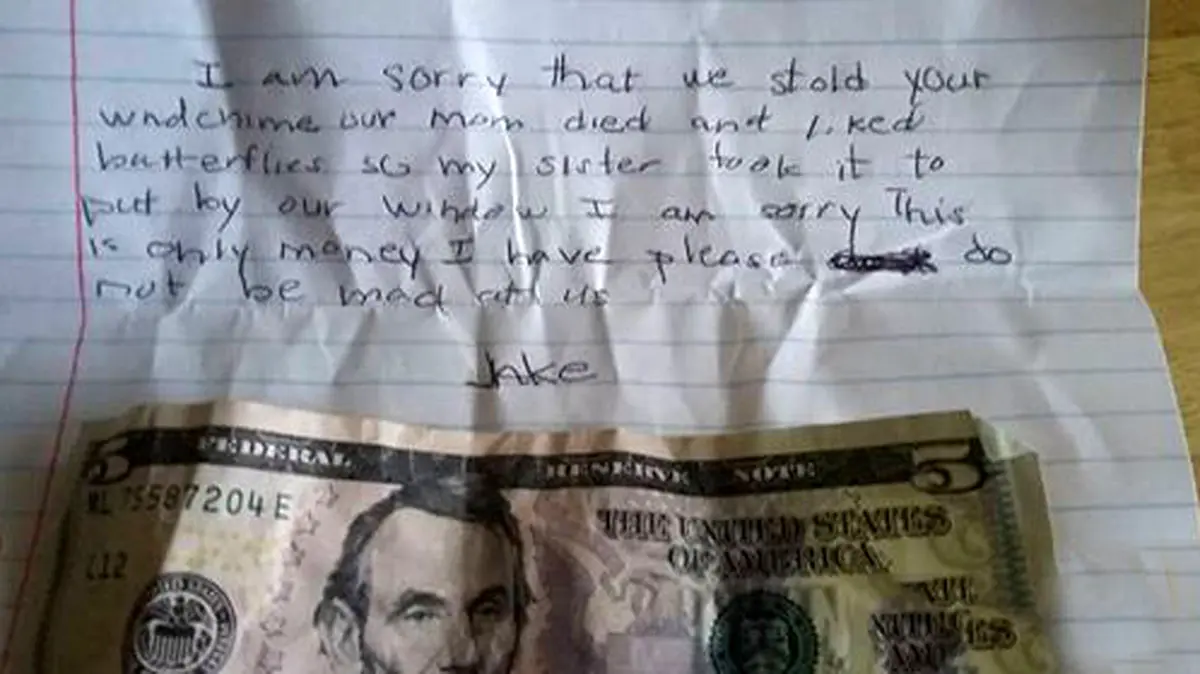 I am sorry that we stold your
wndchime our mom died and liked
butterflies so my sister took it to
put by our window I am sorry This
is only money I have please do
not be mad at us
Jake
5 FEDERAL RESERVE NOTE 5
ML 75587204 E
L12
THE UNITED STATES
OF AMERICA